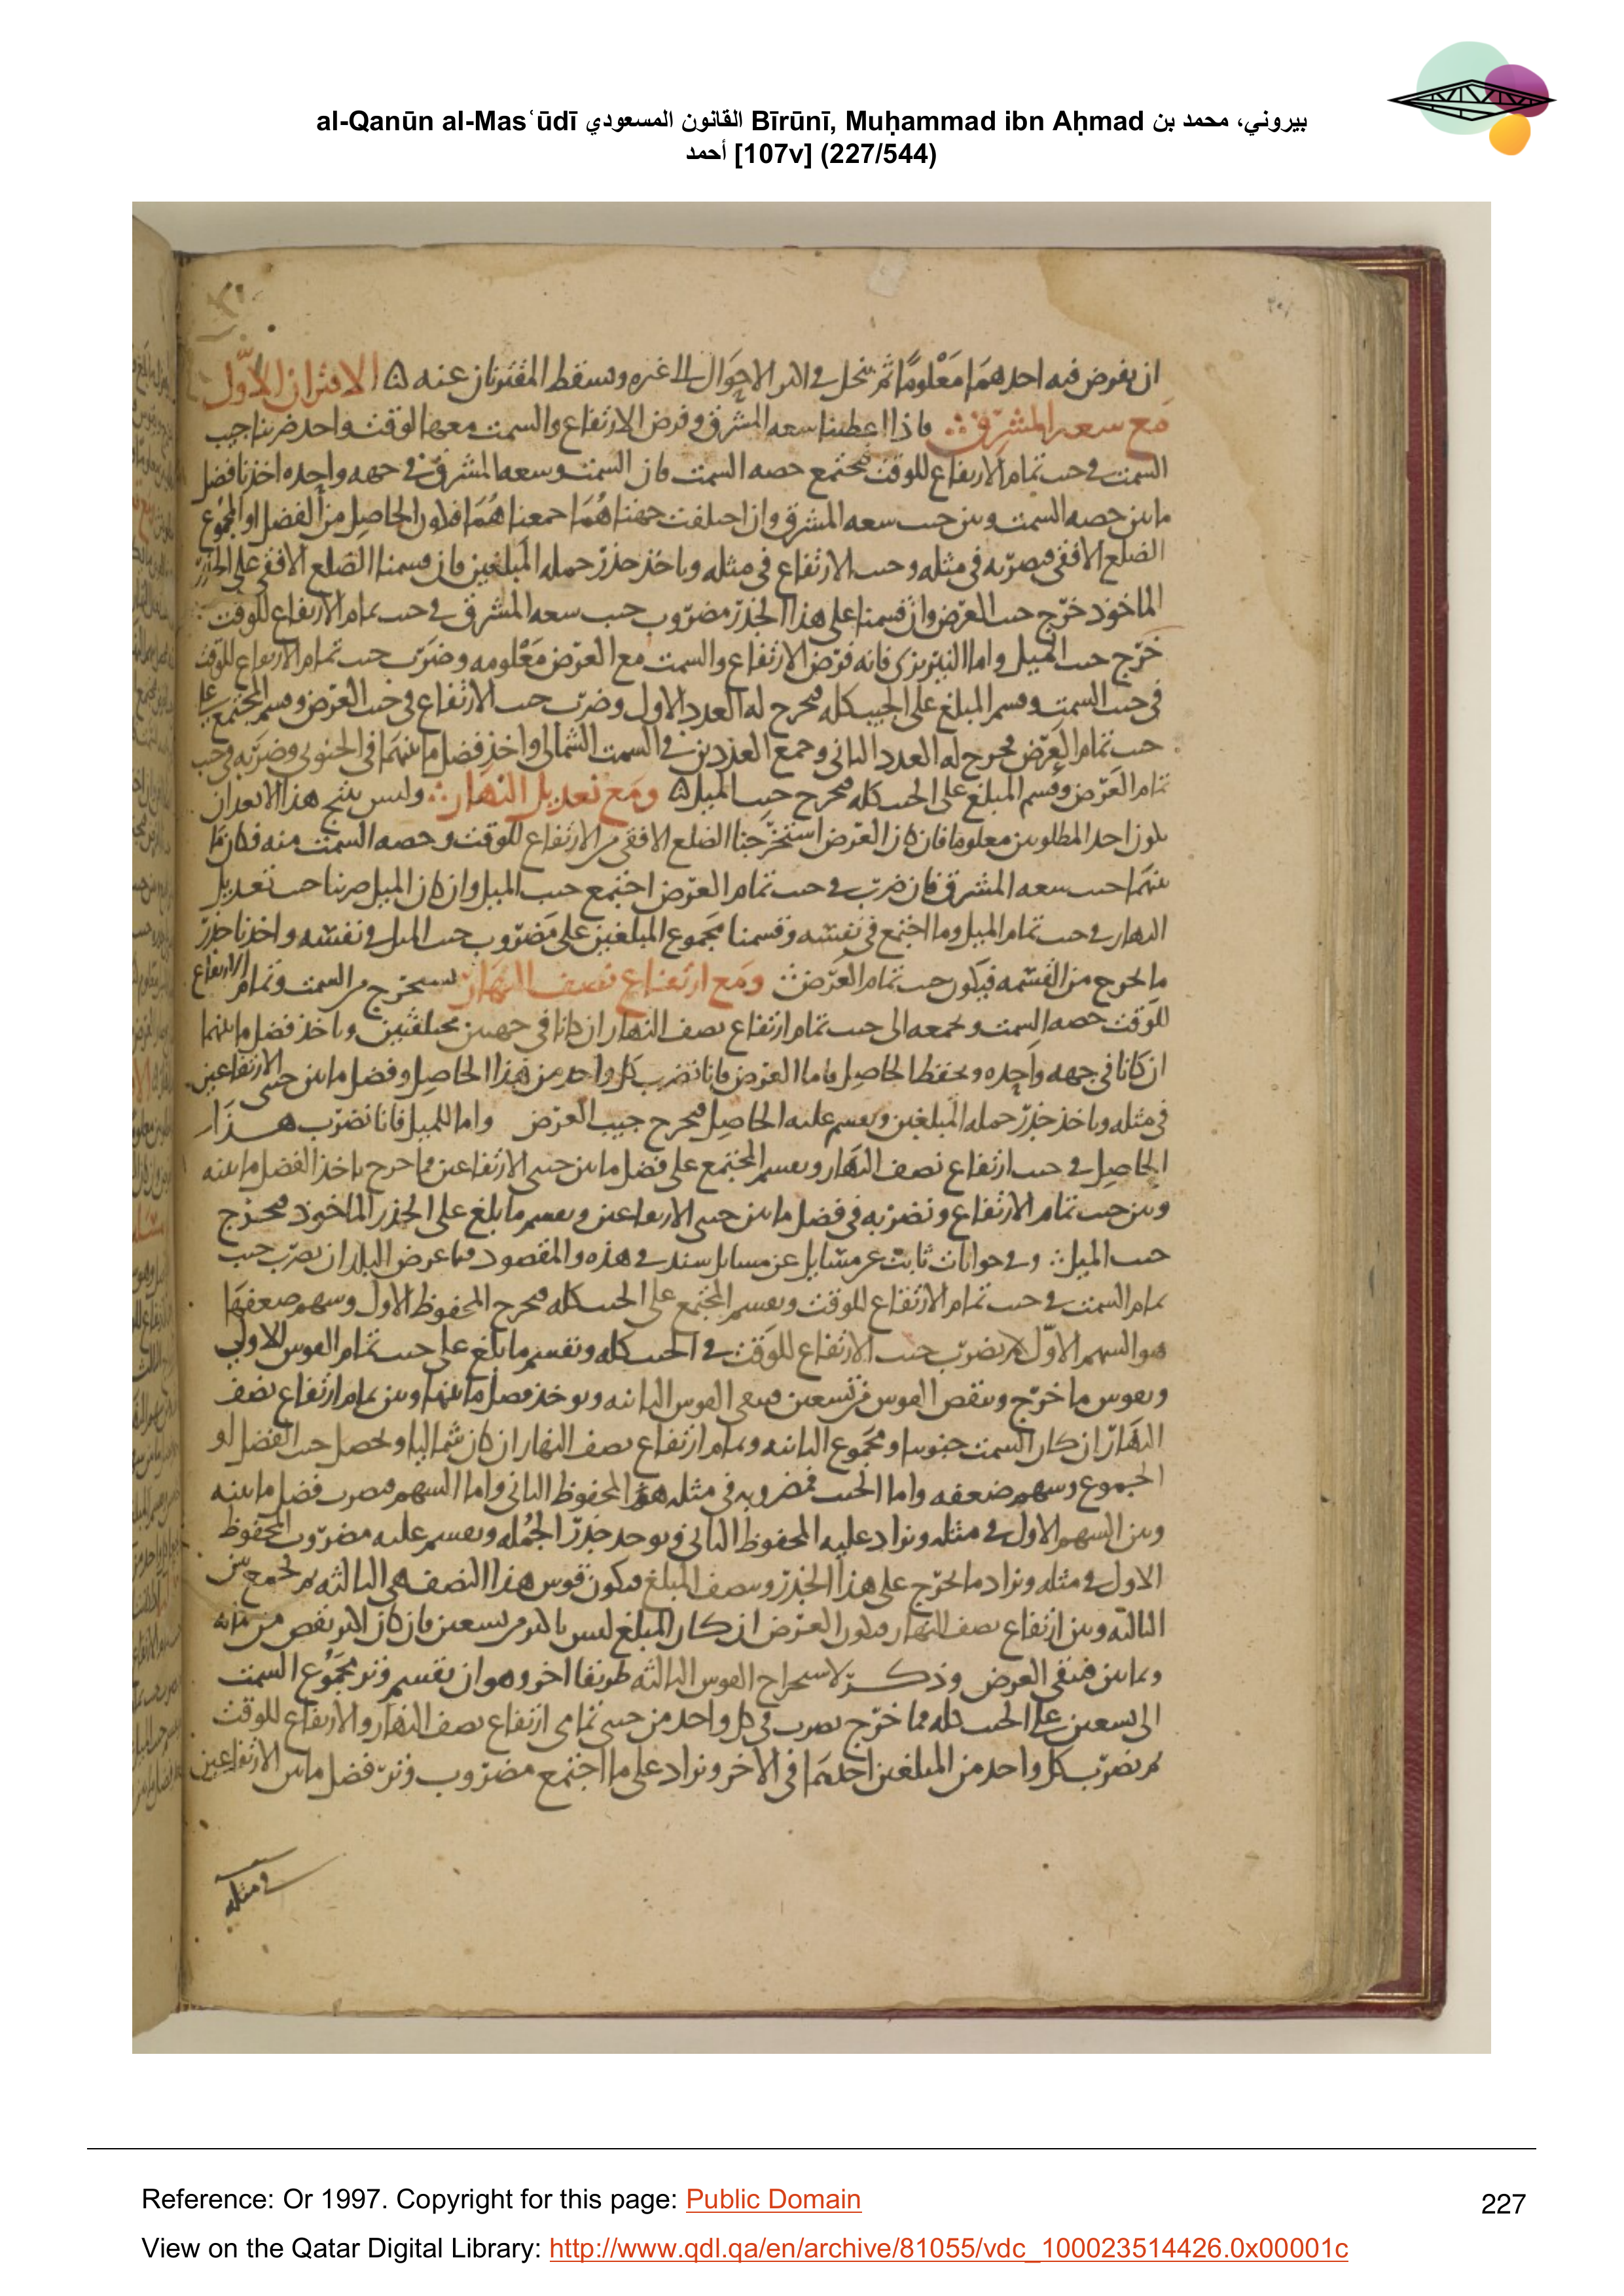 al-Qanūn al-Masʿūdī القانون المسعودي Bīrūnī, Muḥammad ibn Aḥmad بيروني، محمد بن
أحمد [107v] (227/544)
ان نفرض فيه احدهما معلوما ثم الاحوال الى غيره ويسقط المقترنان عنه ۵ الاقتران الاول
مع سعه المشرق ∴ فاذا اعطينا سعه المشرق وفرض الارتفاع والسمت معها لوقت واحد ضربنا جيب
السمت في جيب تمام الارتفاع للوقت فيجتمع حصه السمت فان السمت وسعه المشرق في جهه واحده اخذنا فضل
ما بين حصه السمت وبين جيب سعه المشرق وان اختلفت جهتاهما جمعناهما فيكون الحاصل من الفضل او المجموع
الضلع الافقي فنضربه في مثله وجيب الارتفاع في مثله وناخذ جذر جمله المبلغين فان قسمنا الضلع الافقي على الجذر
الماخوذ خرج جيب العرض وان قسمنا على هذا الجذر مضروب جيب سعه المشرق في جيب تمام الارتفاع للوقت
خرج جيب الميل واما النيريزي فانه فرض الارتفاع والسمت مع العرض معلومه وضرب جيب تمام الارتفاع للوقت
في جيب السمت وقسم المبلغ على الجيب كله فخرج له العدد الاول وضرب جيب الارتفاع في جيب العرض وقسم المجتمع على
جيب تمام العرض فخرج له العدد الثاني وجمع العددين في السمت الشمالي واخذ فضل ما بينهما في الجنوبي وضربه في جيب
تمام العرض وقسم المبلغ على الجيب كله فخرج جيب الميل ۵ ومع تعديل النهار ∴ وليس ينتج هذا الا بعد ان
يكون احد المطلوبين معلوما فان كان العرض استخرجنا الضلع الافقي من الارتفاع للوقت وحصه السمت منه فكان ما
بينهما جيب سعه المشرق فان ضرب في جيب تمام العرض اجتمع جيب الميل وان كان الميل ضربنا جيب تعديل
النهار في جيب تمام الميل وما اجتمع في نفسه وقسمنا مجموع المبلغين على مضروب جيب الميل في نفسه واخذنا جذر
ما يخرج من القسمه فيكون جيب تمام العرض ∴ ومع ارتفاع نصف النهار نستخرج من السمت وتمام الارتفاع
للوقت حصه السمت ونجمعه الى جيب تمام ارتفاع نصف النهار ان كانا في جهتين مختلفتين وناخذ فضل ما بينهما
ان كانا في جهه واحده ونحفظ الحاصل فاما العرض فانا نضرب كل واحد من هذا الحاصل وفضل ما بين جيبي الارتفاعين
في مثله وناخذ جذر جمله المبلغين ونقسم عليه الحاصل فيخرج جيب العرض واما الميل فانا نضرب هذا
الحاصل في جيب ارتفاع نصف النهار ونقسم المجتمع على فضل ما بين جيبي الارتفاعين فما خرج ناخذ الفضل ما بينه
وبين جيب تمام الارتفاع ونضربه في فضل ما بين جيبي الارتفاعين ونقسم ما بلغ على الجذر الماخوذ فيخرج
جيب الميل ∴ وفي جوابات ثابت عن مسايل سند في هذه والمقصود فيها عرض البلد ان نضرب جيب
تمام السمت في جيب تمام الارتفاع للوقت ونقسم المجتمع على الجيب كله فيخرج المحفوظ الاول وسهم ضعفها
هو السهم الاول ثم نضرب جيب الارتفاع للوقت في الجيب كله ونقسم ما بلغ على جيب تمام القوس الاولى
ونقوس ما خرج وننقص القوس من تسعين فيبقى القوس الثانيه ويوخذ فضل ما بينها وبين تمام ارتفاع نصف
النهار ان كان السمت جنوبيا ومجموع الثانيه وتمام ارتفاع نصف النهار ان كان شماليا ويحصل جيب الفضل او
المجموع وسهم ضعفه واما الجيب فمضروبه في مثله هو المحفوظ الثاني واما السهم فيضرب فضل ما بينه
وبين السهم الاول في مثله ونزاد عليه المحفوظ الثاني ويوخذ جذر الجمله ونقسم عليه مضروب المحفوظ
الاول في مثله ونزاد ما يخرج على هذا الجذر وننصف المبلغ فيكون قوس هذا النصف هي الثالثه ثم نجمع بين
الثالثه وبين ارتفاع نصف النهار فيكون العرض ان كان المبلغ ليس باكثر من تسعين فان كان اكثر نقص من مائه
وثمانين فيبقى العرض وذكر لاستخراج القوس الثالثه طريقا اخر وهو ان نقسم وتر مجموع السمت
الى تسعين على الجيب كله فما خرج نضرب في كل واحد من جيبي تمامي ارتفاع نصف النهار والارتفاع للوقت
ثم نضرب كل واحد من المبلغين احدهما في الاخر ونزاد على ما اجتمع مضروب وتر فضل ما بين الارتفاعين
في مثله
Reference: Or 1997. Copyright for this page: Public Domain
227
View on the Qatar Digital Library: http://www.qdl.qa/en/archive/81055/vdc_100023514426.0x00001c